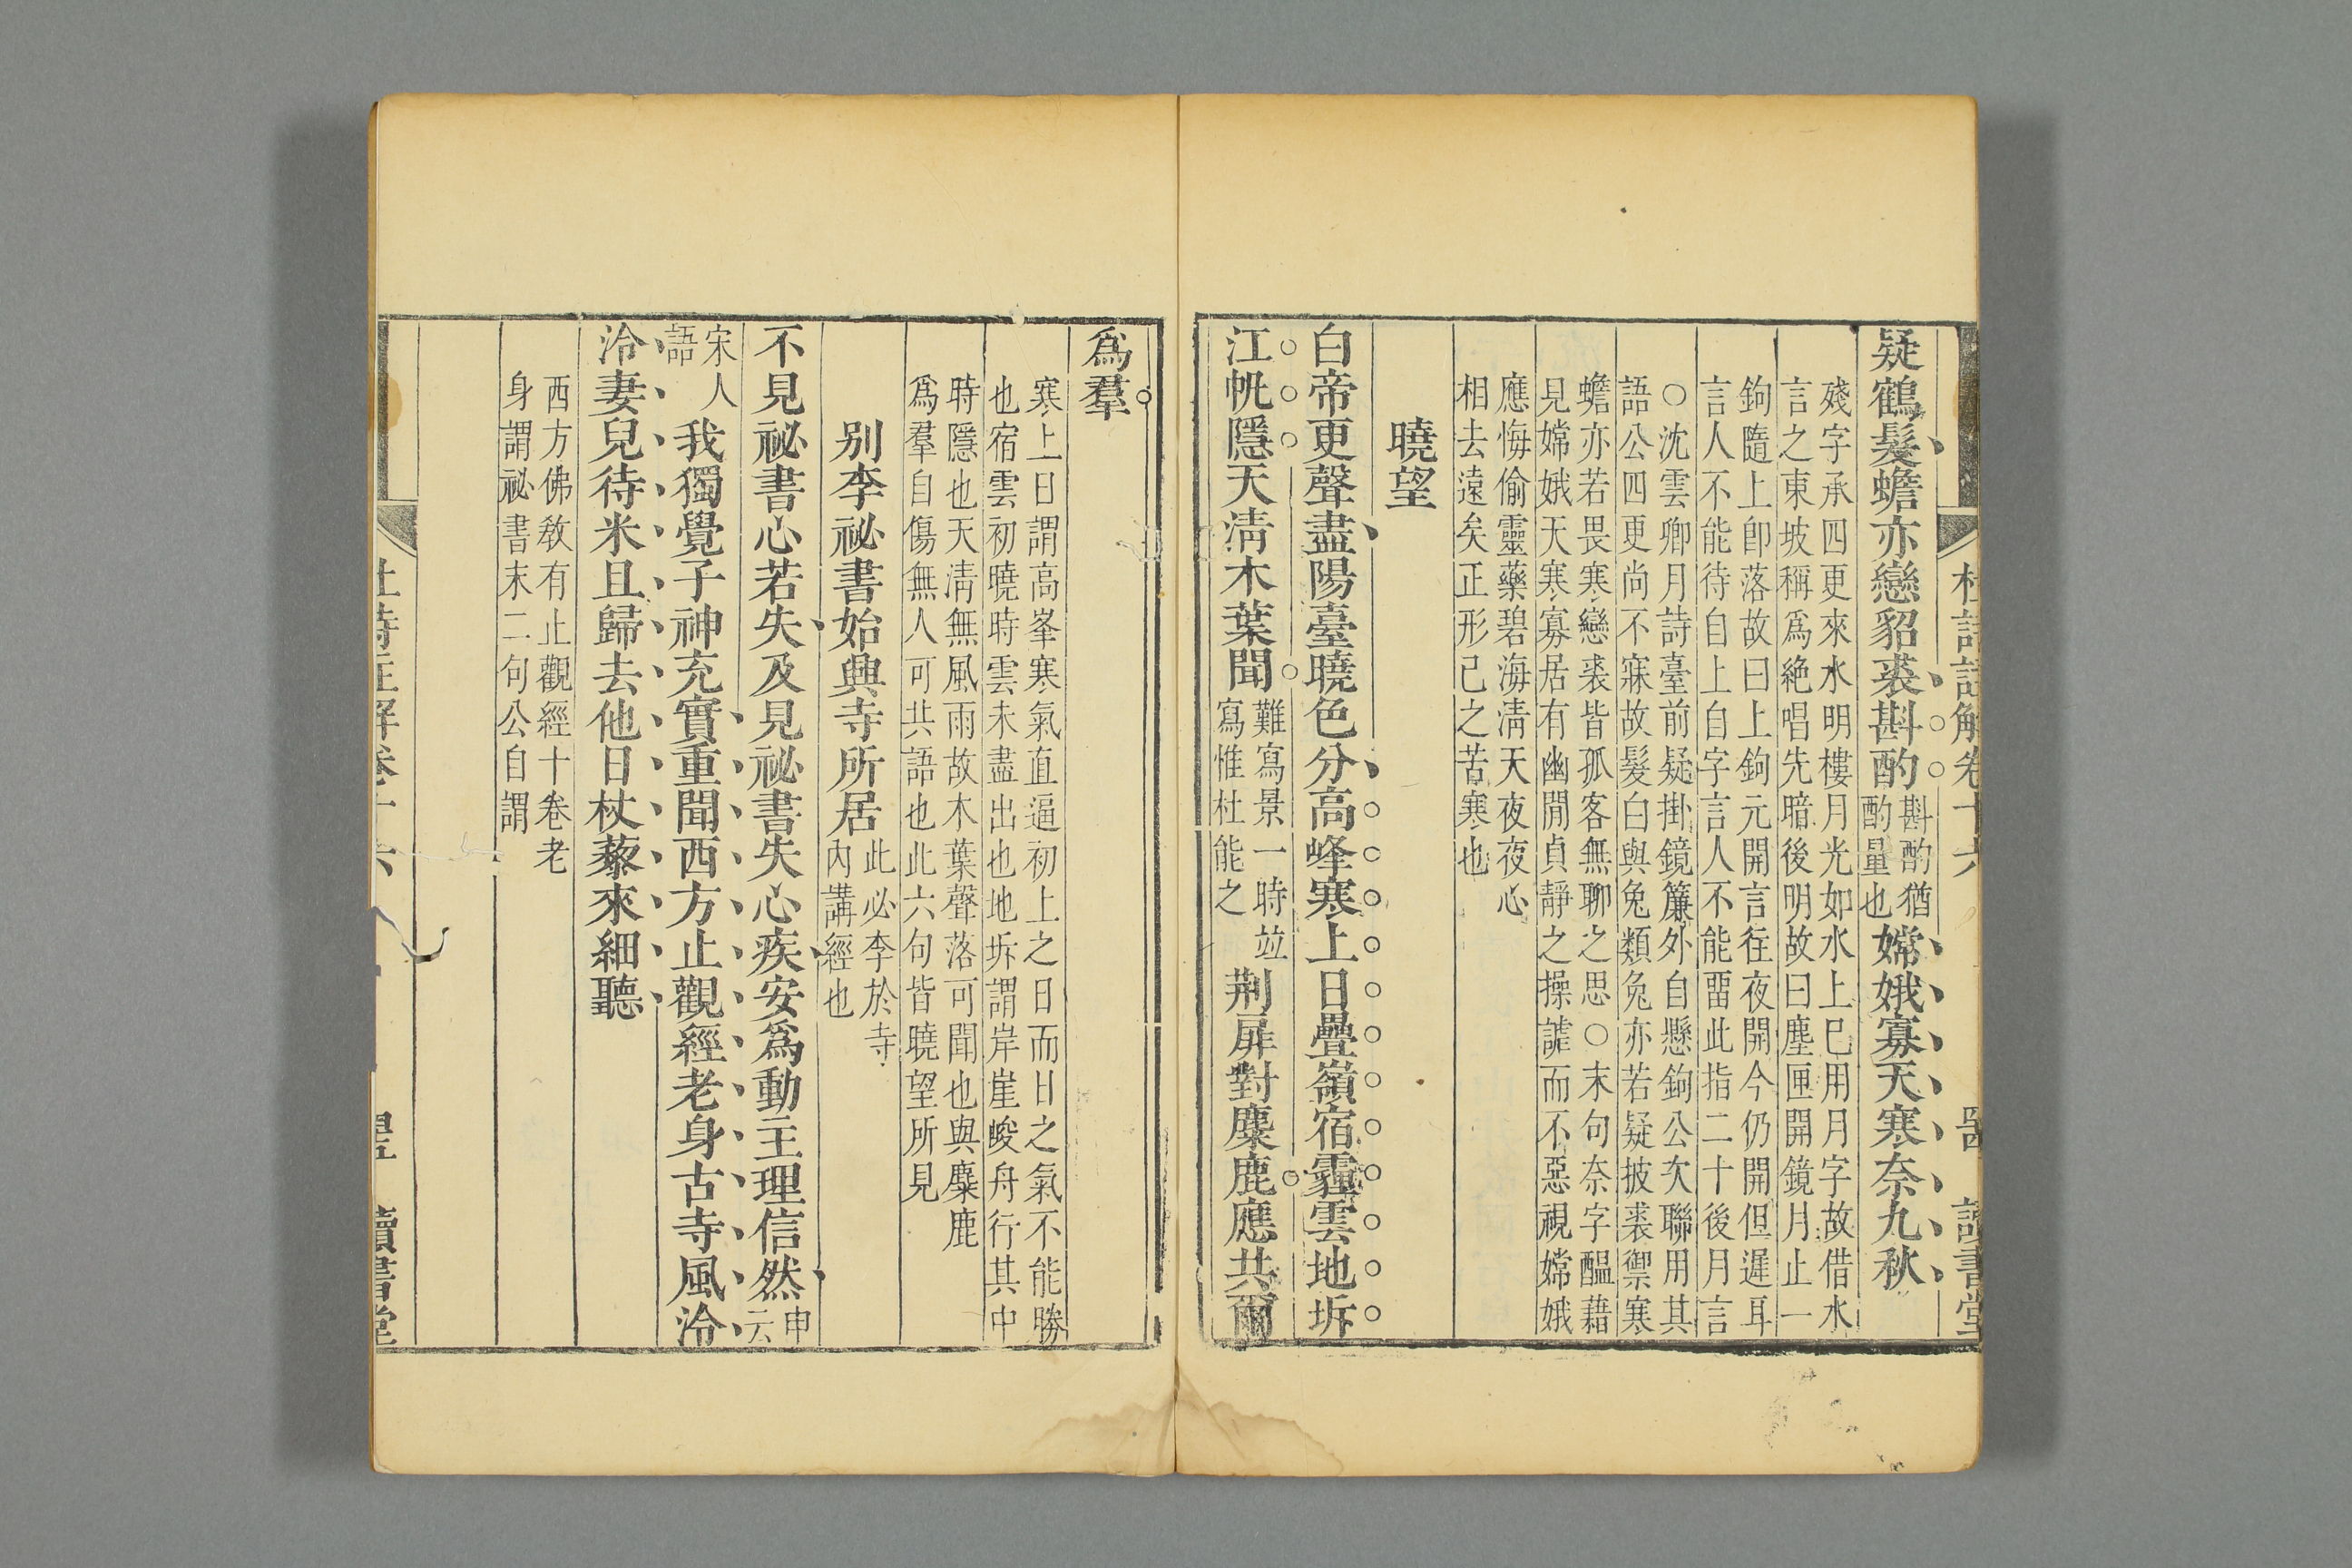 杜詩註解卷十六 讀書堂
疑鶴髮蟾亦戀貂裘斟酌斟酌猶酌量也嫦娥寡天寒奈九秋
殘字承四更來水明樓月光如水上巳用月字故借水
言之東坡稱爲絶唱先暗後明故曰塵匣開鏡月止一
鉤隨上卽落故曰上鉤元開言徃夜開今仍開但遲耳
言人不能待自上自字言人不能畱此指二十後月言
○沈雲卿月詩臺前疑掛鏡簾外自懸鉤公次聯用其
語公四更尚不寐故髮白與兔類兔亦若疑披裘禦寒
蟾亦若畏寒戀裘皆孤客無聊之思○末句奈字醞藉
見嫦娥天寒寡居有幽閒貞靜之操謔而不惡視嫦娥
應悔偷靈藥碧海淸天夜夜心
相去遠矣正形己之苦寒也
曉望
白帝更聲盡陽臺曉色分高峰寒上日疊嶺宿霾雲地坼
江帆隱天淸木葉聞難寫景一時竝寫惟杜能之荆扉對麋鹿應共爾
爲羣
寒上日謂高峯寒氣直逼初上之日而日之氣不能勝
也宿雲初曉時雲未盡出也地坼謂岸崖峻舟行其中
時隱也天淸無風雨故木葉聲落可聞也與麋鹿
爲羣自傷無人可共語也此六句皆曉望所見
別李祕書始興寺所居此必李於寺內講經也
不見祕書心若失及見祕書失心疾安爲動主理信然申云
宋人語我獨覺子神充實重聞西方止觀經老身古寺風泠
泠妻兒待米且歸去他日杖藜來細聽
西方佛敎有止觀經十卷老
身謂祕書末二句公自謂
杜詩註解卷十六 讀書堂